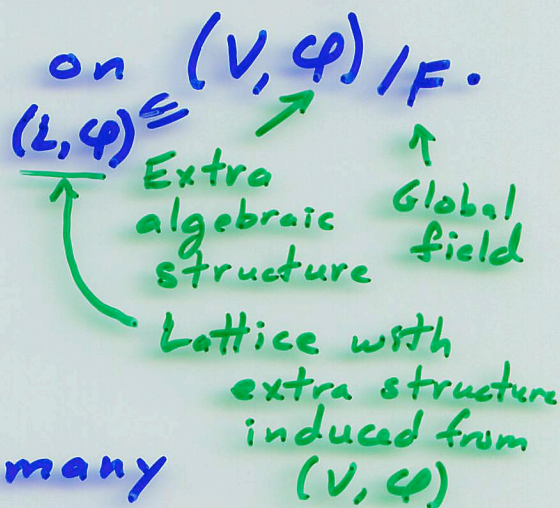 on (V, φ) /F.
(L, φ) ⊆
Extra
algebraic
structure
Global
field
Lattice with
extra structure
induced from
(V, φ)
many